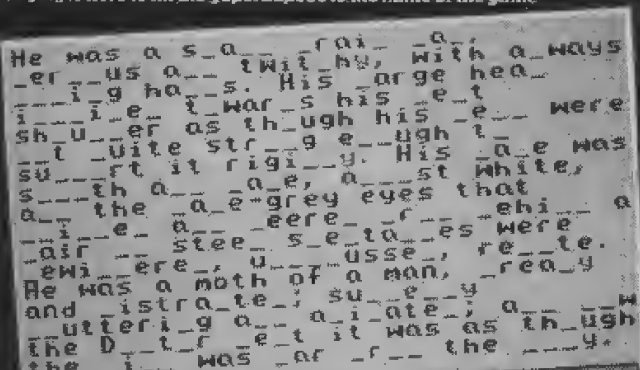 He was a s_a__ _rai_ _a_,
_er__us a__ twit_hy, with a_ways
____i_g ha__s. His _arge hea_
i___i_e_ t_war_s his _e_t
sh_u__er as th_ugh his _e__ were
__t _uite str__g e__ugh t_
su___rt it rigi__y. His _a_e was
s___th a__ _a_e, a___st white,
a__ the _a_e-grey eyes that
__i__e_ a__ _eere_ _r__ _ehi__ a
_air __ stee_ s_e_ta__es were
_ewi__ere_, u____usse_, re__te.
He was a moth of a man, _rea_y
and _istra_te_; su__e__y
__utteri_g a__ a_i_ate_; a__ __w
the D__t_r _e_t it was as th_ugh
the _i__ was _ar _r__ the ___y.